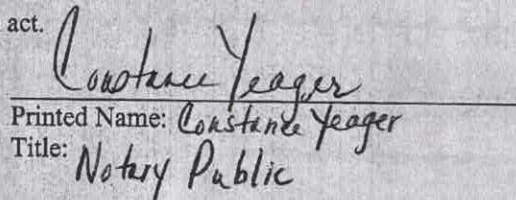 act.
Constance Yeager
Printed Name: Constance Yeager
Title: Notary Public